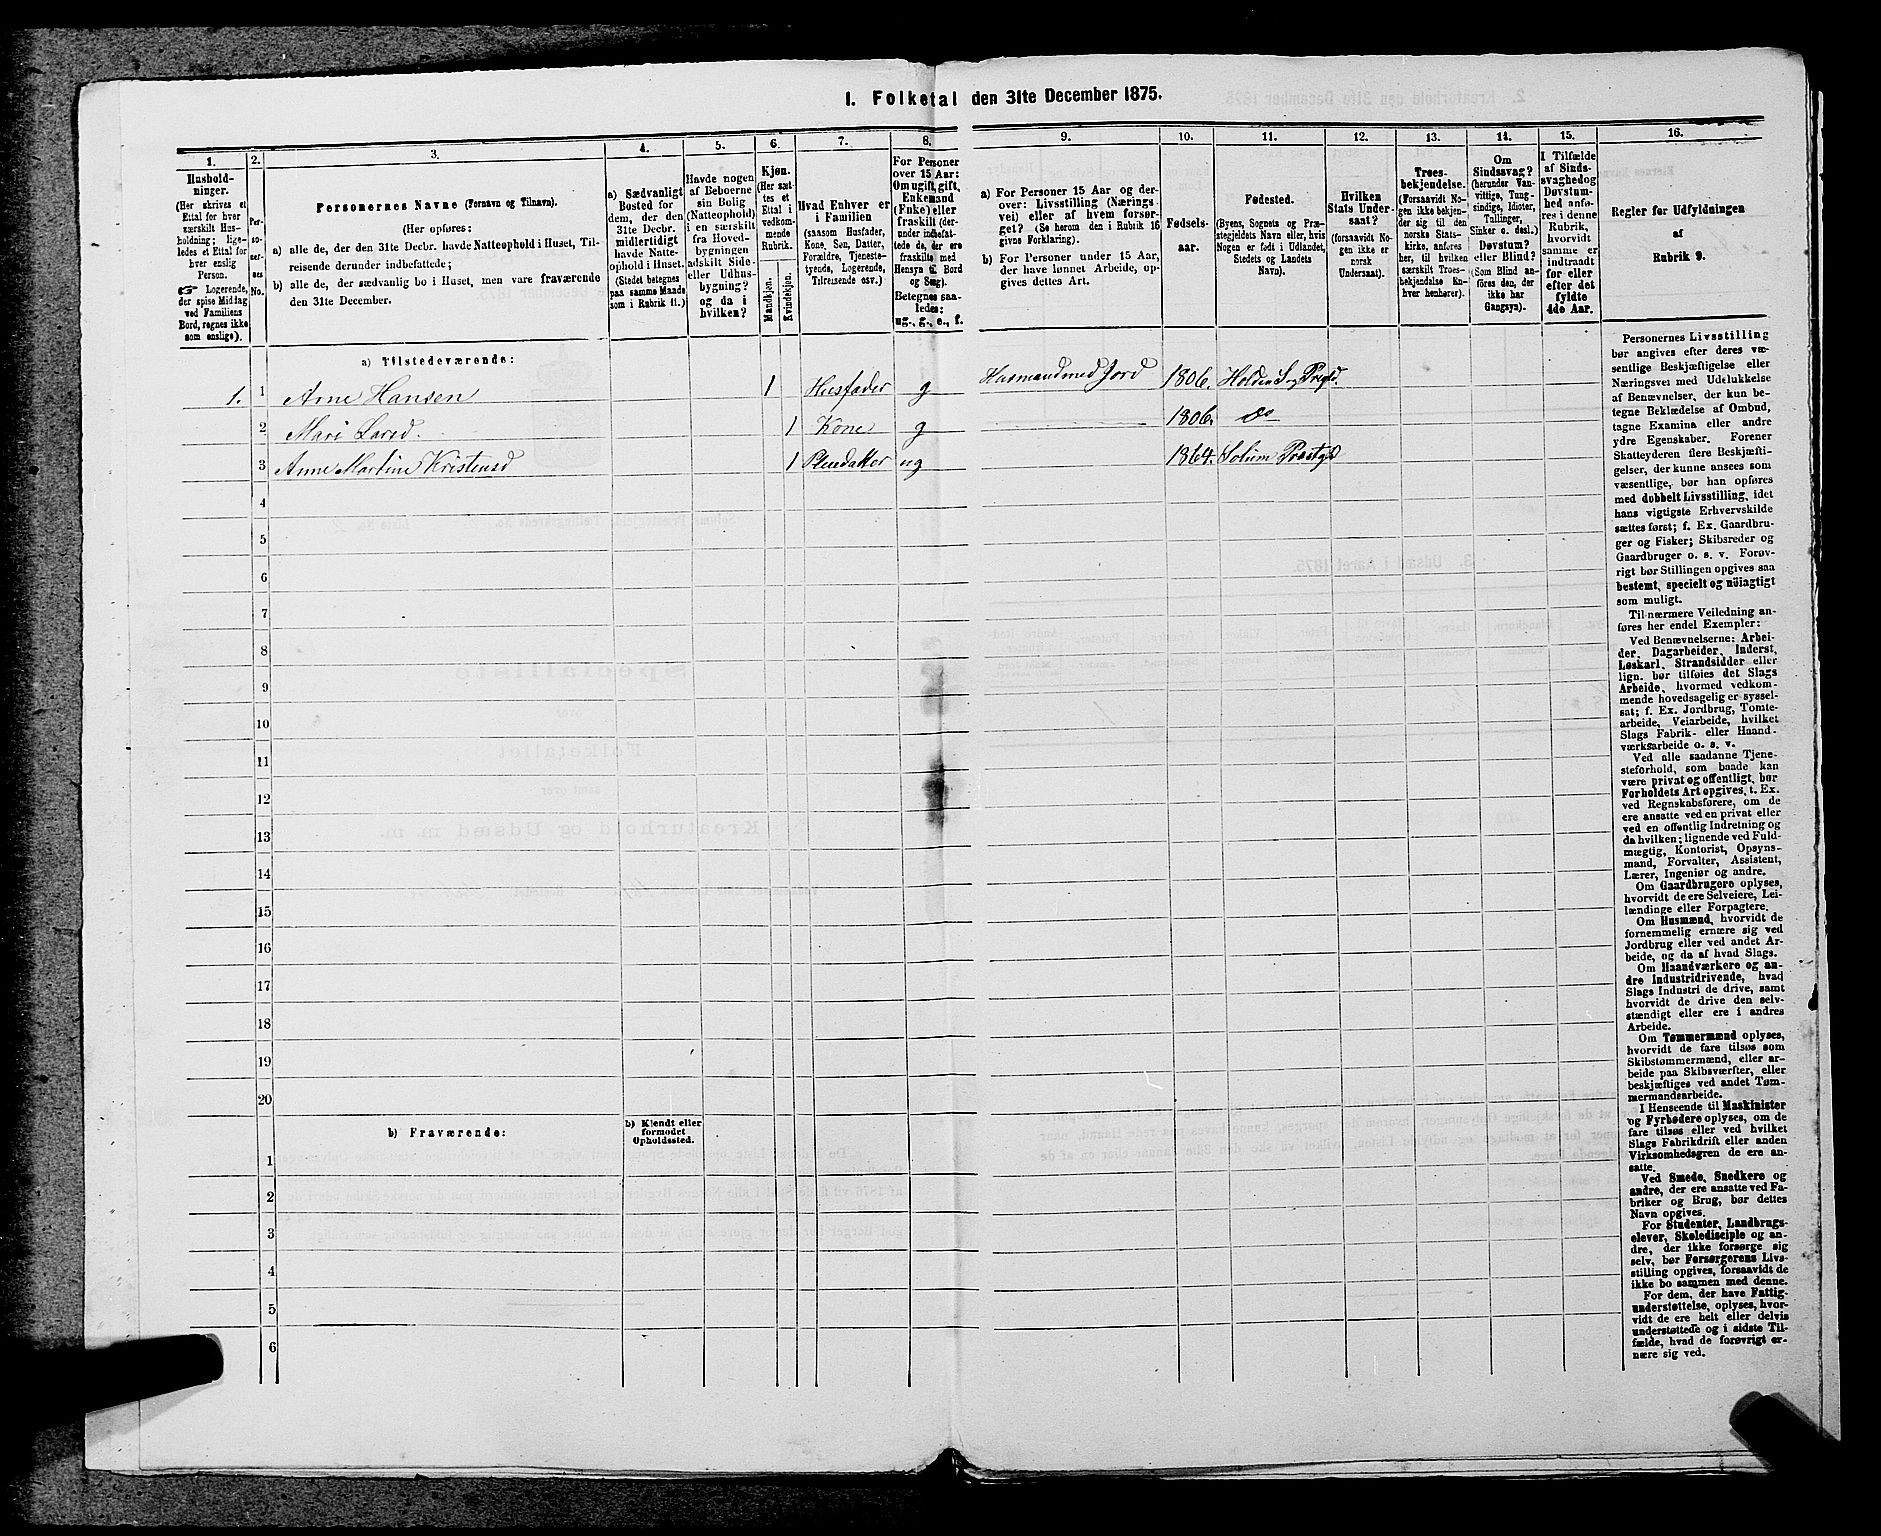 1. Folketal den 31te December 1875.
1.
Hushold-
ninger.
(Her skrives et
Ettal for hver
særskilt Hus-
holdning; lige-
ledes et Ettal for
hver enslig
Person.
☞ Logerende,
der spise Middag
ved Familiens
Bord, regnes ikke
som enslige).
2.
Per-
so-
ner-
nes
No.
3.
Personernes Navne (Fornavn og Tilnavn).
(Her opføres:
a) alle de, der den 31te Decbr. havde Natteophold i Huset, Til-
reisende derunder indbefattede;
b) alle de, der sædvanlig bo i Huset, men vare fraværende
den 31te December.
4.
a) Sædvanligt
Bosted for
dem, der den
31te Decbr.
midlertidigt
havde Natte-
ophold i Huset.
(Stedet betegnes
paa samme Maade
som i Rubrik 11.)
5.
Havde nogen
af Beboerne
sin Bolig
(Natteophold)
i en særskilt
fra Hoved-
bygningen
adskilt Side-
eller Udhus-
bygning?
og da i
hvilken?
6.
Kjøn.
(Her sæt-
tes et
Ettal i
vedkom-
mende
Rubrik.
Mandkjøn.
Kvindekjøn.
7.
Hvad Enhver er
i Familien
(saasom Husfader,
Kone, Søn, Datter,
Forældre, Tjeneste-
tyende, Logerende,
Tilreisende osv.)
8.
For Personer
over 15 Aar:
Om ugift, gift,
Enkemand
(Enke) eller
fraskilt (der-
under indbefat-
tede de, der ere
fraskilte med
Hensyn til Bord
og Seng).
Betegnes saa-
ledes:
ug., g., e., f.
9.
a) For Personer 15 Aar og der-
over: Livsstilling (Nærings-
vei) eller af hvem forsør-
get? (Se herom den i Rubrik 16
givne Forklaring).
b) For Personer under 15 Aar,
der have lønnet Arbeide, op-
gives dettes Art.
10.
Fødsels-
aar.
11.
Fødested.
(Byens, Sognets og Præ-
stegjeldets Navn eller, hvis
Nogen er født i Udlandet,
Stedets og Landets
Navn).
12.
Hvilken
Stats Under-
saat?
(forsaavidt No-
gen ikke er
norsk
Undersaat).
13.
Troes-
bekjendelse.
(Forsaavidt No-
gen ikke bekjen-
der sig til den
norske Stats-
kirke, anføres
her, til hvilken
særskilt Troes-
bekjendelse En-
hver henhører).
14.
Om
Sindssvag?
(herunder Van-
vittige, Tung-
sindige, Idioter,
Tullinger,
Sinker o. desl.)
Døvstum?
eller Blind?
(Som Blind an-
føres den, der
ikke har
Gangsyn).
15.
I Tilfælde
af Sinds-
svaghed og
Døvstum-
hed anfø-
res i denne
Rubrik,
hvorvidt
samme er
indtraadt
før eller
efter det
fyldte
4de Aar.
16.
Regler for Udfyldningen
af
Rubrik 9.
a) Tilstedeværende:
1. 1 Arne Hansen 1 Husfader g Husmand med Jord 1806. Holden S. og Prgjd.
2 Mari Larsd. 1 Kone g 1806. do
3 Anne Martine Kristensd 1 Pleiedatter ug 1864. Solum Præstgd
4
5
6
7
8
9
10
11
12
13
14
15
16
17
18
19
20
b) Fraværende:
b) Kjendt eller
formodet
Opholdssted.
1
2
3
4
5
6
Personernes Livsstilling
bør angives efter deres væ-
sentlige Beskjæftigelse eller
Næringsvei med Udelukkelse
af Benævnelser, der kun be-
tegne Beklædelse af Ombud,
tagne Examina eller andre
ydre Egenskaber. Forener
Skatteyderen flere Beskjæfti-
gelser, der kunne ansees som
væsentlige, bør han opføres
med dobbelt Livsstilling, idet
hans vigtigste Erhvervskilde
sættes først; f. Ex. Gaardbru-
ger og Fisker; Skibsreder og
Gaardbruger o. s. v. Forøv-
rigt bør Stillingen opgives saa
bestemt, specielt og nøiagtigt
som muligt.
Til nærmere Veiledning an-
føres her endel Exempler:
Ved Benævnelserne: Arbei-
der, Dagarbeider, Inderst,
Løskarl, Strandsidder eller
lign. bør tilføies det Slags
Arbeide, hvormed vedkom-
mende hovedsagelig er syssel-
sat; f. Ex. Jordbrug, Tomte-
arbeide, Veiarbeide, hvilket
Slags Fabrik- eller Haand-
værksarbeide o. s. v.
Ved alle saadanne Tjene-
steforhold, som baade kan
være privat og offentligt, bør
Forholdets Art opgives, t. Ex.
ved Regnskabsførere, om de
ere ansatte ved en privat eller
ved en offentlig Indretning og
da hvilken; lignende ved Fuld-
mægtig, Kontorist, Opsyns-
mand, Forvalter, Assistent,
Lærer, Ingeniør og andre.
Om Gaardbrugere oplyses,
hvorvidt de ere Selveiere, Lei-
lændinge eller Forpagtere.
Om Husmænd, hvorvidt de
fornemmelig ernære sig ved
Jordbrug eller ved andet Ar-
beide, og da af hvad Slags.
Om Haandværkere og an-
dre Industridrivende, hvad
Slags Industri de drive, samt
hvorvidt de drive den selv-
stændigt eller ere i andres
Arbeide.
Om Tømmermænd oplyses,
hvorvidt de fare tilsøs som
Skibstømmermænd, eller ar-
beide paa Skibsværfter, eller
beskjæftiges ved andet Tøm-
mermandsarbeide.
I Henseende til Maskinister
og Fyrbødere oplyses, om de
fare tilsøs eller ved hvilket
Slags Fabrikdrift eller anden
Virksomhedsgren de ere an-
satte.
Ved Smede, Snedkere og
andre, der ere ansatte ved Fa-
briker og Brug, bør dettes
Navn opgives.
For Studenter, Landbrugs-
elever, Skoledisciple og an-
dre, der ikke forsørge sig
selv, bør Forsørgerens Livs-
stilling opgives, forsaavidt de
ikke bo sammen med denne.
For dem, der have Fattig-
understøttelse, oplyses, hvor-
vidt de ere helt eller delvis
understøttede og i sidste Til-
fælde, hvad de forøvrigt er-
nære sig ved.